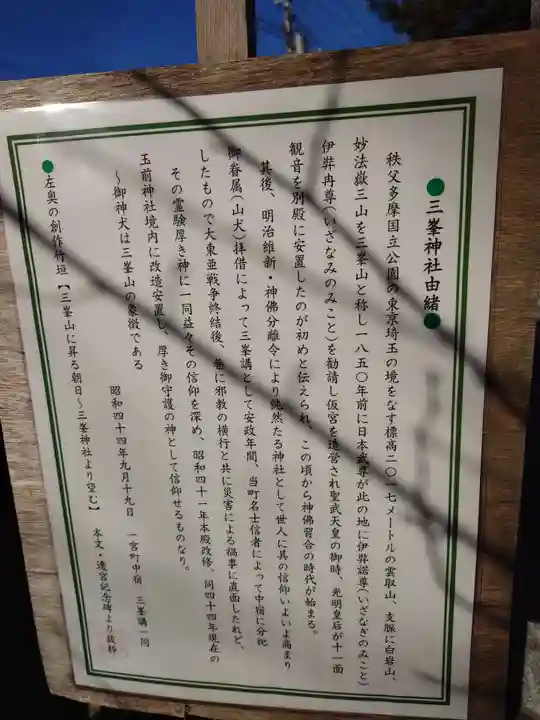 ●三峯神社由緒●
秩父多摩国立公園の東京埼玉の境をなす標高二〇一七メートルの雲取山、支脈に白岩山、
妙法嶽三山を三峯山と称し一八五〇年前に日本武尊が此の地に伊弉諾尊(いざなぎのみこと)
伊弉冉尊(いざなみのみこと)を勧請し仮宮を造営され聖武天皇の御時、光明皇后が十一面
観音を別殿に安置したのが初めと伝えられ、この頃から神佛習合の時代が始まる。
其後、明治維新・神佛分離令により純然たる神社として世人に其の信仰いよいよ高まり
御眷属(山犬)拝借によって三峯講として安政年間、当町名士信者によって中宿に分祀
したもので大東亜戦争終結後、巷に邪教の横行と共に災害による禍事に直面したれど、
その霊験厚き神に一同益々その信仰を深め、昭和四十一年本殿改修。同四十四年現在の
玉前神社境内に改造安置し、厚き御守護の神として信仰せるものなり。
～御神犬は三峯山の象徴である
昭和四十四年九月十九日 一宮町中宿 三峯講一同
●左奥の創作竹垣【三峯山に昇る朝日～三峯神社より望む】 本文・遷宮記念碑より抜粋